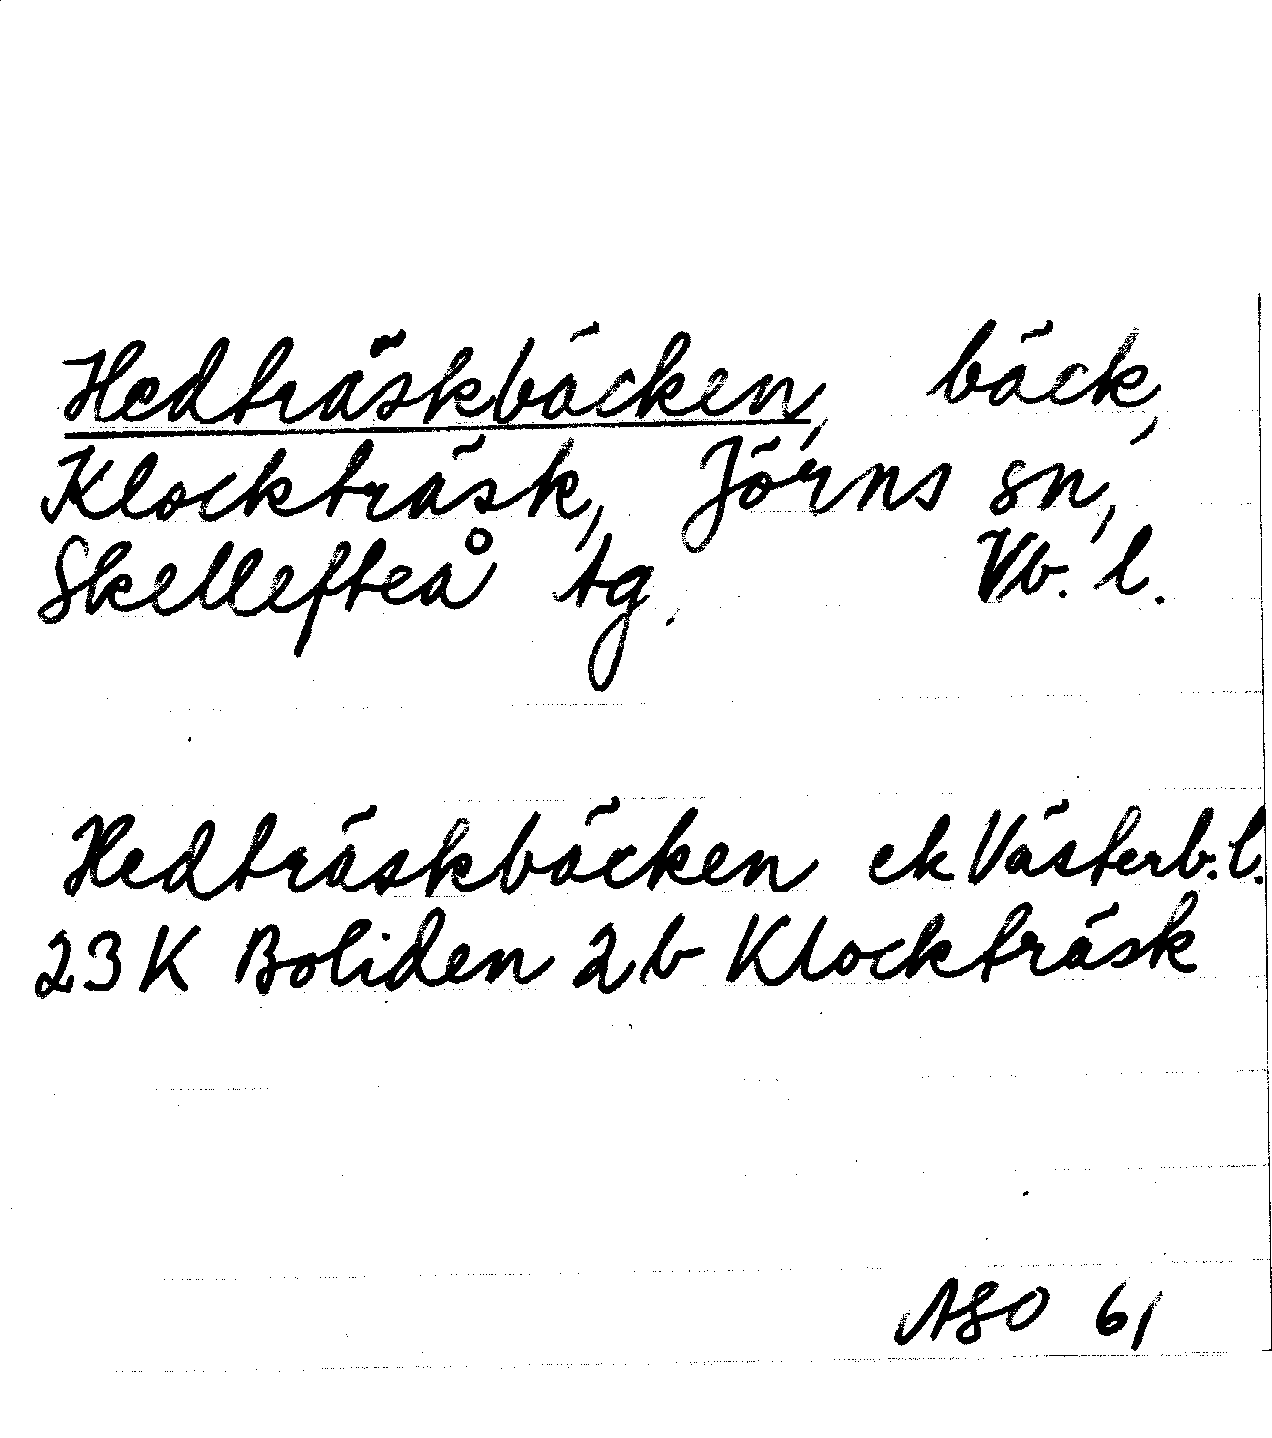 Hedträskbäcken, bäck,
Klockträsk, Jörns sn,
Skellefteå tg. Vb. l.
Hedträskbäcken ek Västerb. l.
23 K Boliden 2 b Klockträsk
ASO 61